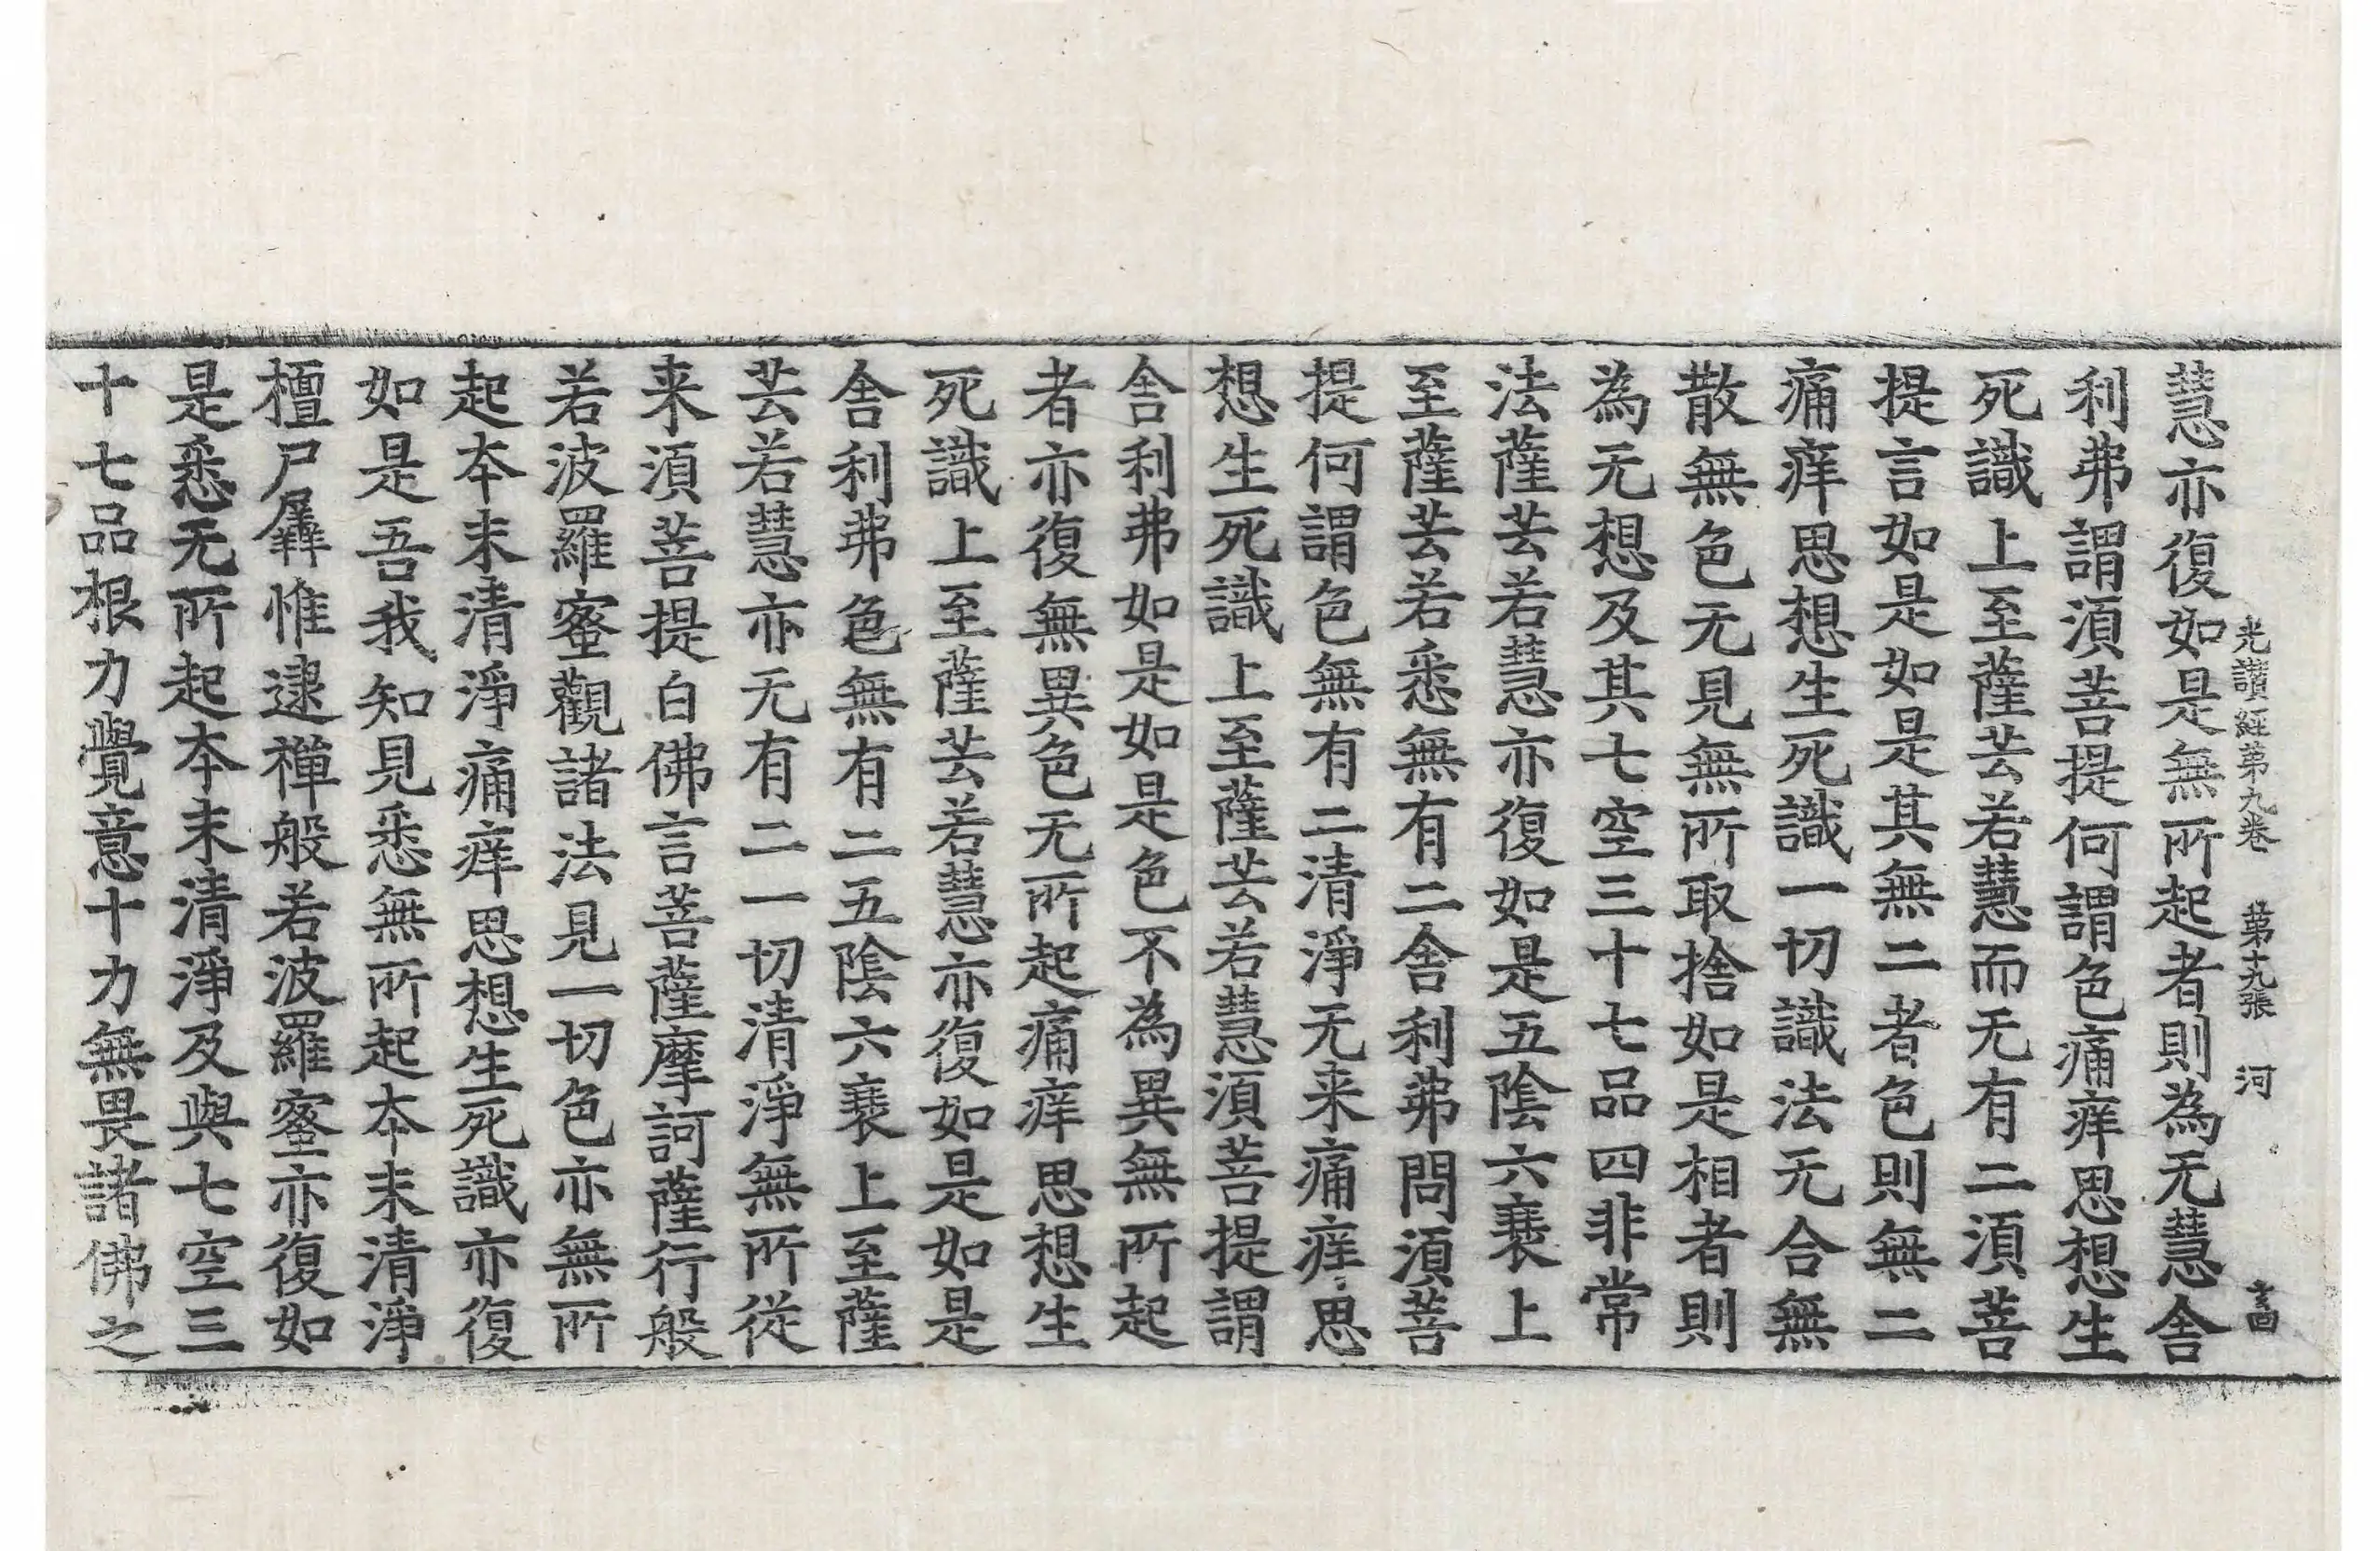 光讃経第九卷 第十九張 河
慧亦復如是無所起者則為无慧舎
利弗謂須菩提何謂色痛痒思想生
死識上至薩芸若慧而无有二須菩
提言如是如是其無二者色則無二
痛痒思想生死識一切識法无合無
散無色无見無所取捨如是相者則
為无想及其七空三十七品四非常
法薩芸若慧亦復如是五陰六衰上
至薩芸若悉無有二舎利弗問須菩
提何謂色無有二清淨无来痛痒思
想生死識上至薩芸若慧須菩提謂
舎利弗如是如是色不為異無所起
者亦復無異色无所起痛痒思想生
死識上至薩芸若慧亦復如是如是
舎利弗色無有二五陰六衰上至薩
芸若慧亦无有二一切清淨無所從
来須菩提白佛言菩薩摩訶薩行般
若波羅蜜觀諸法見一切色亦無所
起本末清淨痛痒思想生死識亦復
如是吾我知見悉無所起本末清淨
檀尸羼惟逮禪般若波羅蜜亦復如
是悉无所起本末清淨及與七空三
十七品根力覺意十力無畏諸佛之